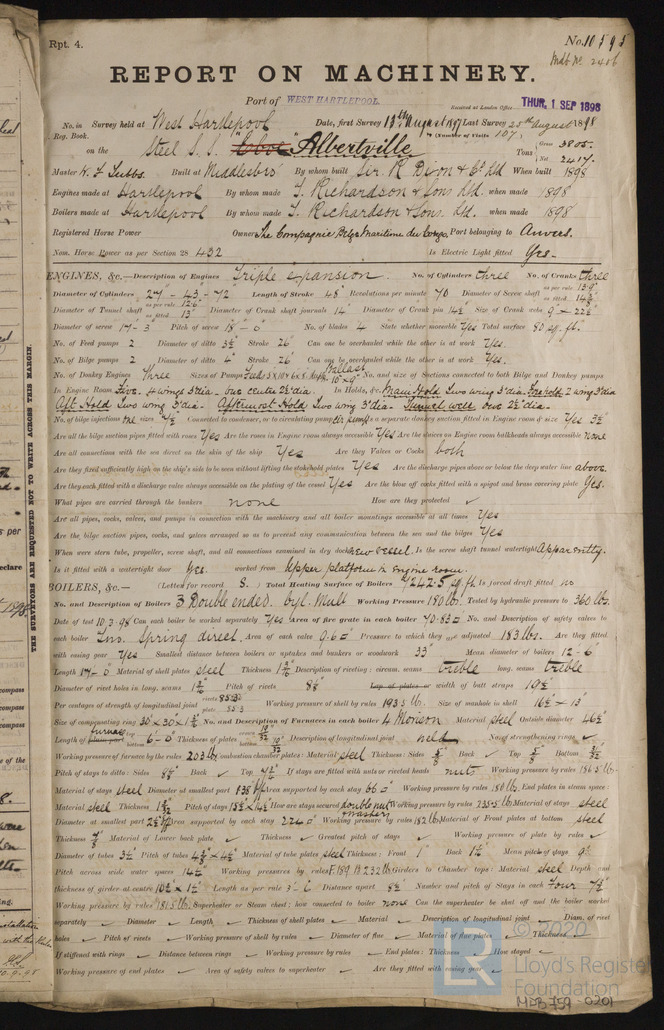 Rpt. 4.
No. 10595
Mdb No 2406
REPORT ON MACHINERY.
Port of WEST HARTLEPOOL
Received at London Office THUR. 1 SEP 1898
No. in Survey held at West Hartlepool Date, first Survey 13th August 1897 Last Survey 25th August 1898
Reg. Book. (Number of Visits 107)
on the Steel S.S. "Albertville" Tons Gross 3805. Net 2417.
Master Built at Middlesbro' By whom built Sir R Dixon & Co Ld When built 1898
Engines made at Hartlepool By whom made T. Richardson & Sons Ld. when made 1898
Boilers made at Hartlepool By whom made T. Richardson & Sons. Ld. when made 1898
Registered Horse Power Owners The Compagnie Belge Maritime du Congo Port belonging to Anvers.
Nom. Horse Power as per Section 28 432 Is Electric Light fitted Yes.
ENGINES, &c.—Description of Engines Triple expansion. No. of Cylinders three No. of Cranks three
Diameter of Cylinders 27" - 43" - 72" Length of Stroke 48" Revolutions per minute 70 Diameter of Screw shaft as per rule as fitted
Diameter of Tunnel shaft as per rule 12.6" as fitted 13" Diameter of Crank shaft journals 14" Diameter of Crank pin 14½" Size of Crank webs 9" × 22½"
Diameter of screw 17-3" Pitch of screw 18'-0" No. of blades 4 State whether moveable Yes Total surface 80 sq. ft.
No. of Feed pumps 2 Diameter of ditto 3½" Stroke 26" Can one be overhauled while the other is at work Yes.
No. of Bilge pumps 2 Diameter of ditto 4" Stroke 26" Can one be overhauled while the other is at work Yes.
No. of Donkey Engines Three Sizes of Pumps Ballast 10"×9" No. and size of Suctions connected to both Bilge and Donkey pumps
In Engine Room Five. 4 wings 3" dia - one centre 2½" dia In Holds, &c. Main Hold Two wing 3" dia. Fore hold 2 wing 3" dia
Aft Hold Two wing 3" dia. Aftermost Hold Two wing 3" dia - Tunnel well one 2½" dia -
No. of bilge injections one sizes 7½ Connected to condenser, or to circulating pump Cir pump Is a separate donkey suction fitted in Engine room & size Yes 3½
Are all the bilge suction pipes fitted with roses Yes Are the roses in Engine room always accessible Yes Are the sluices on Engine room bulkheads always accessible none
Are all connections with the sea direct on the skin of the ship Yes Are they Valves or Cocks both
Are they fixed sufficiently high on the ship's side to be seen without lifting the stokehold plates Yes Are the discharge pipes above or below the deep water line above.
Are they each fitted with a discharge valve always accessible on the plating of the vessel Yes Are the blow off cocks fitted with a spigot and brass covering plate Yes.
What pipes are carried through the bunkers none How are they protected ✓
Are all pipes, cocks, valves, and pumps in connection with the machinery and all boiler mountings accessible at all times Yes
Are the bilge suction pipes, cocks, and valves arranged so as to prevent any communication between the sea and the bilges Yes
When were stern tube, propeller, screw shaft, and all connections examined in dry dock new vessel. Is the screw shaft tunnel watertight Apparently.
Is it fitted with a watertight door Yes. worked from Upper platform in engine room.
BOILERS, &c.— (Letter for record S.) Total Heating Surface of Boilers 7242.5 sq ft Is forced draft fitted no
No. and Description of Boilers 3 Double ended. Cyl. Mult Working Pressure 180 lbs. Tested by hydraulic pressure to 360 lbs.
Date of test 10.3.98 Can each boiler be worked separately Yes Area of fire grate in each boiler No. and Description of safety valves to
each boiler Two. Spring direct. Area of each valve 9.6 □" Pressure to which they are adjusted 183 lbs. Are they fitted
with easing gear Yes Smallest distance between boilers or uptakes and bunkers or woodwork 33" Mean diameter of boilers 12-6"
Length 17-0" Material of shell plates steel Thickness Description of riveting: circum. seams treble long. seams treble
Diameter of rivet holes in long. seams Pitch of rivets Lap of plates or width of butt straps
Per centages of strength of longitudinal joint rivets plate 85.3 Working pressure of shell by rules 193.5 lb. Size of manhole in shell 16½" × 13"
Size of compensating ring No. and Description of Furnaces in each boiler 4 Morison Material steel Outside diameter 46½"
Length of plain part furnace top 6'-0" bottom Thickness of plates crown bottom Description of longitudinal joint weld No. of strengthening rings ✓
Working pressure of furnace by the rules 203 lbs Combustion chamber plates: Material steel Thickness: Sides Back ✓ Top Bottom
Pitch of stays to ditto: Sides Back ✓ Top If stays are fitted with nuts or riveted heads nuts Working pressure by rules
Material of stays steel Diameter at smallest part Area supported by each stay 66 □" Working pressure by rules End plates in steam space:
Material steel Thickness Pitch of stays How are stays secured double nuts washers Working pressure by rules Material of stays steel
Diameter at smallest part Area supported by each stay Working pressure by rules 182 lb Material of Front plates at bottom steel
Thickness Material of Lower back plate ✓ Thickness ✓ Greatest pitch of stays ✓ Working pressure of plate by rules ✓
Diameter of tubes 3½" Pitch of tubes Material of tube plates steel Thickness: Front Back Mean pitch of stays
Pitch across wide water spaces Working pressures by rules Girders to Chamber tops: Material steel Depth and
thickness of girder at centre Length as per rule Distance apart Number and pitch of Stays in each four
Working pressure by rules Superheater or Steam chest; how connected to boiler none Can the superheater be shut off and the boiler worked
separately ✓ Diameter ✓ Length ✓ Thickness of shell plates ✓ Material ✓ Description of longitudinal joint ✓ Diam. of rivet
holes ✓ Pitch of rivets ✓ Working pressure of shell by rules ✓ Diameter of flue ✓ Material of flue plates ✓ Thickness ✓
If stiffened with rings ✓ Distance between rings ✓ Working pressure by rules ✓ End plates: Thickness ✓ How stayed ✓
Working pressure of end plates ✓ Area of safety valves to superheater ✓ Are they fitted with easing gear ✓
THE SURVEYORS ARE REQUESTED NOT TO WRITE ACROSS THIS MARGIN.
© 2020
LR
Lloyd's Register
Foundation
MDB759-0201